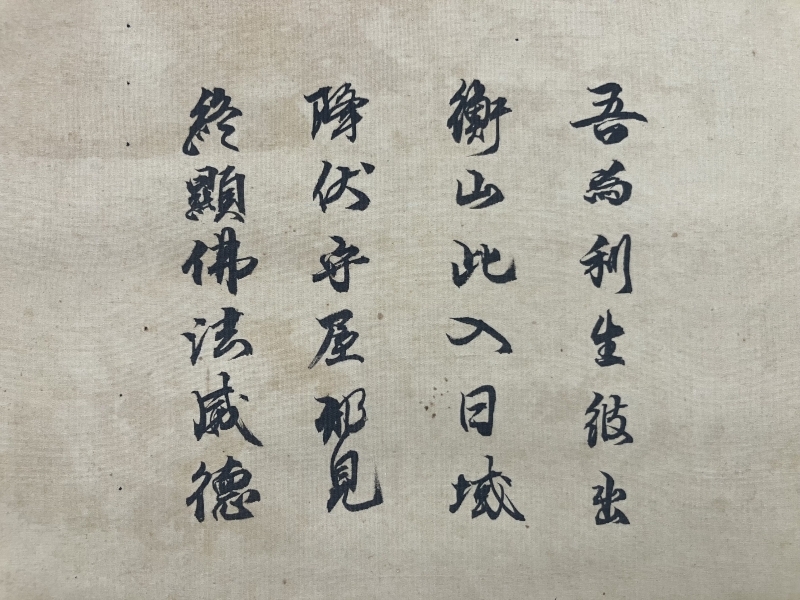 吾為利生彼出
衡山此入日域
降伏守屋邪見
終顯佛法威德